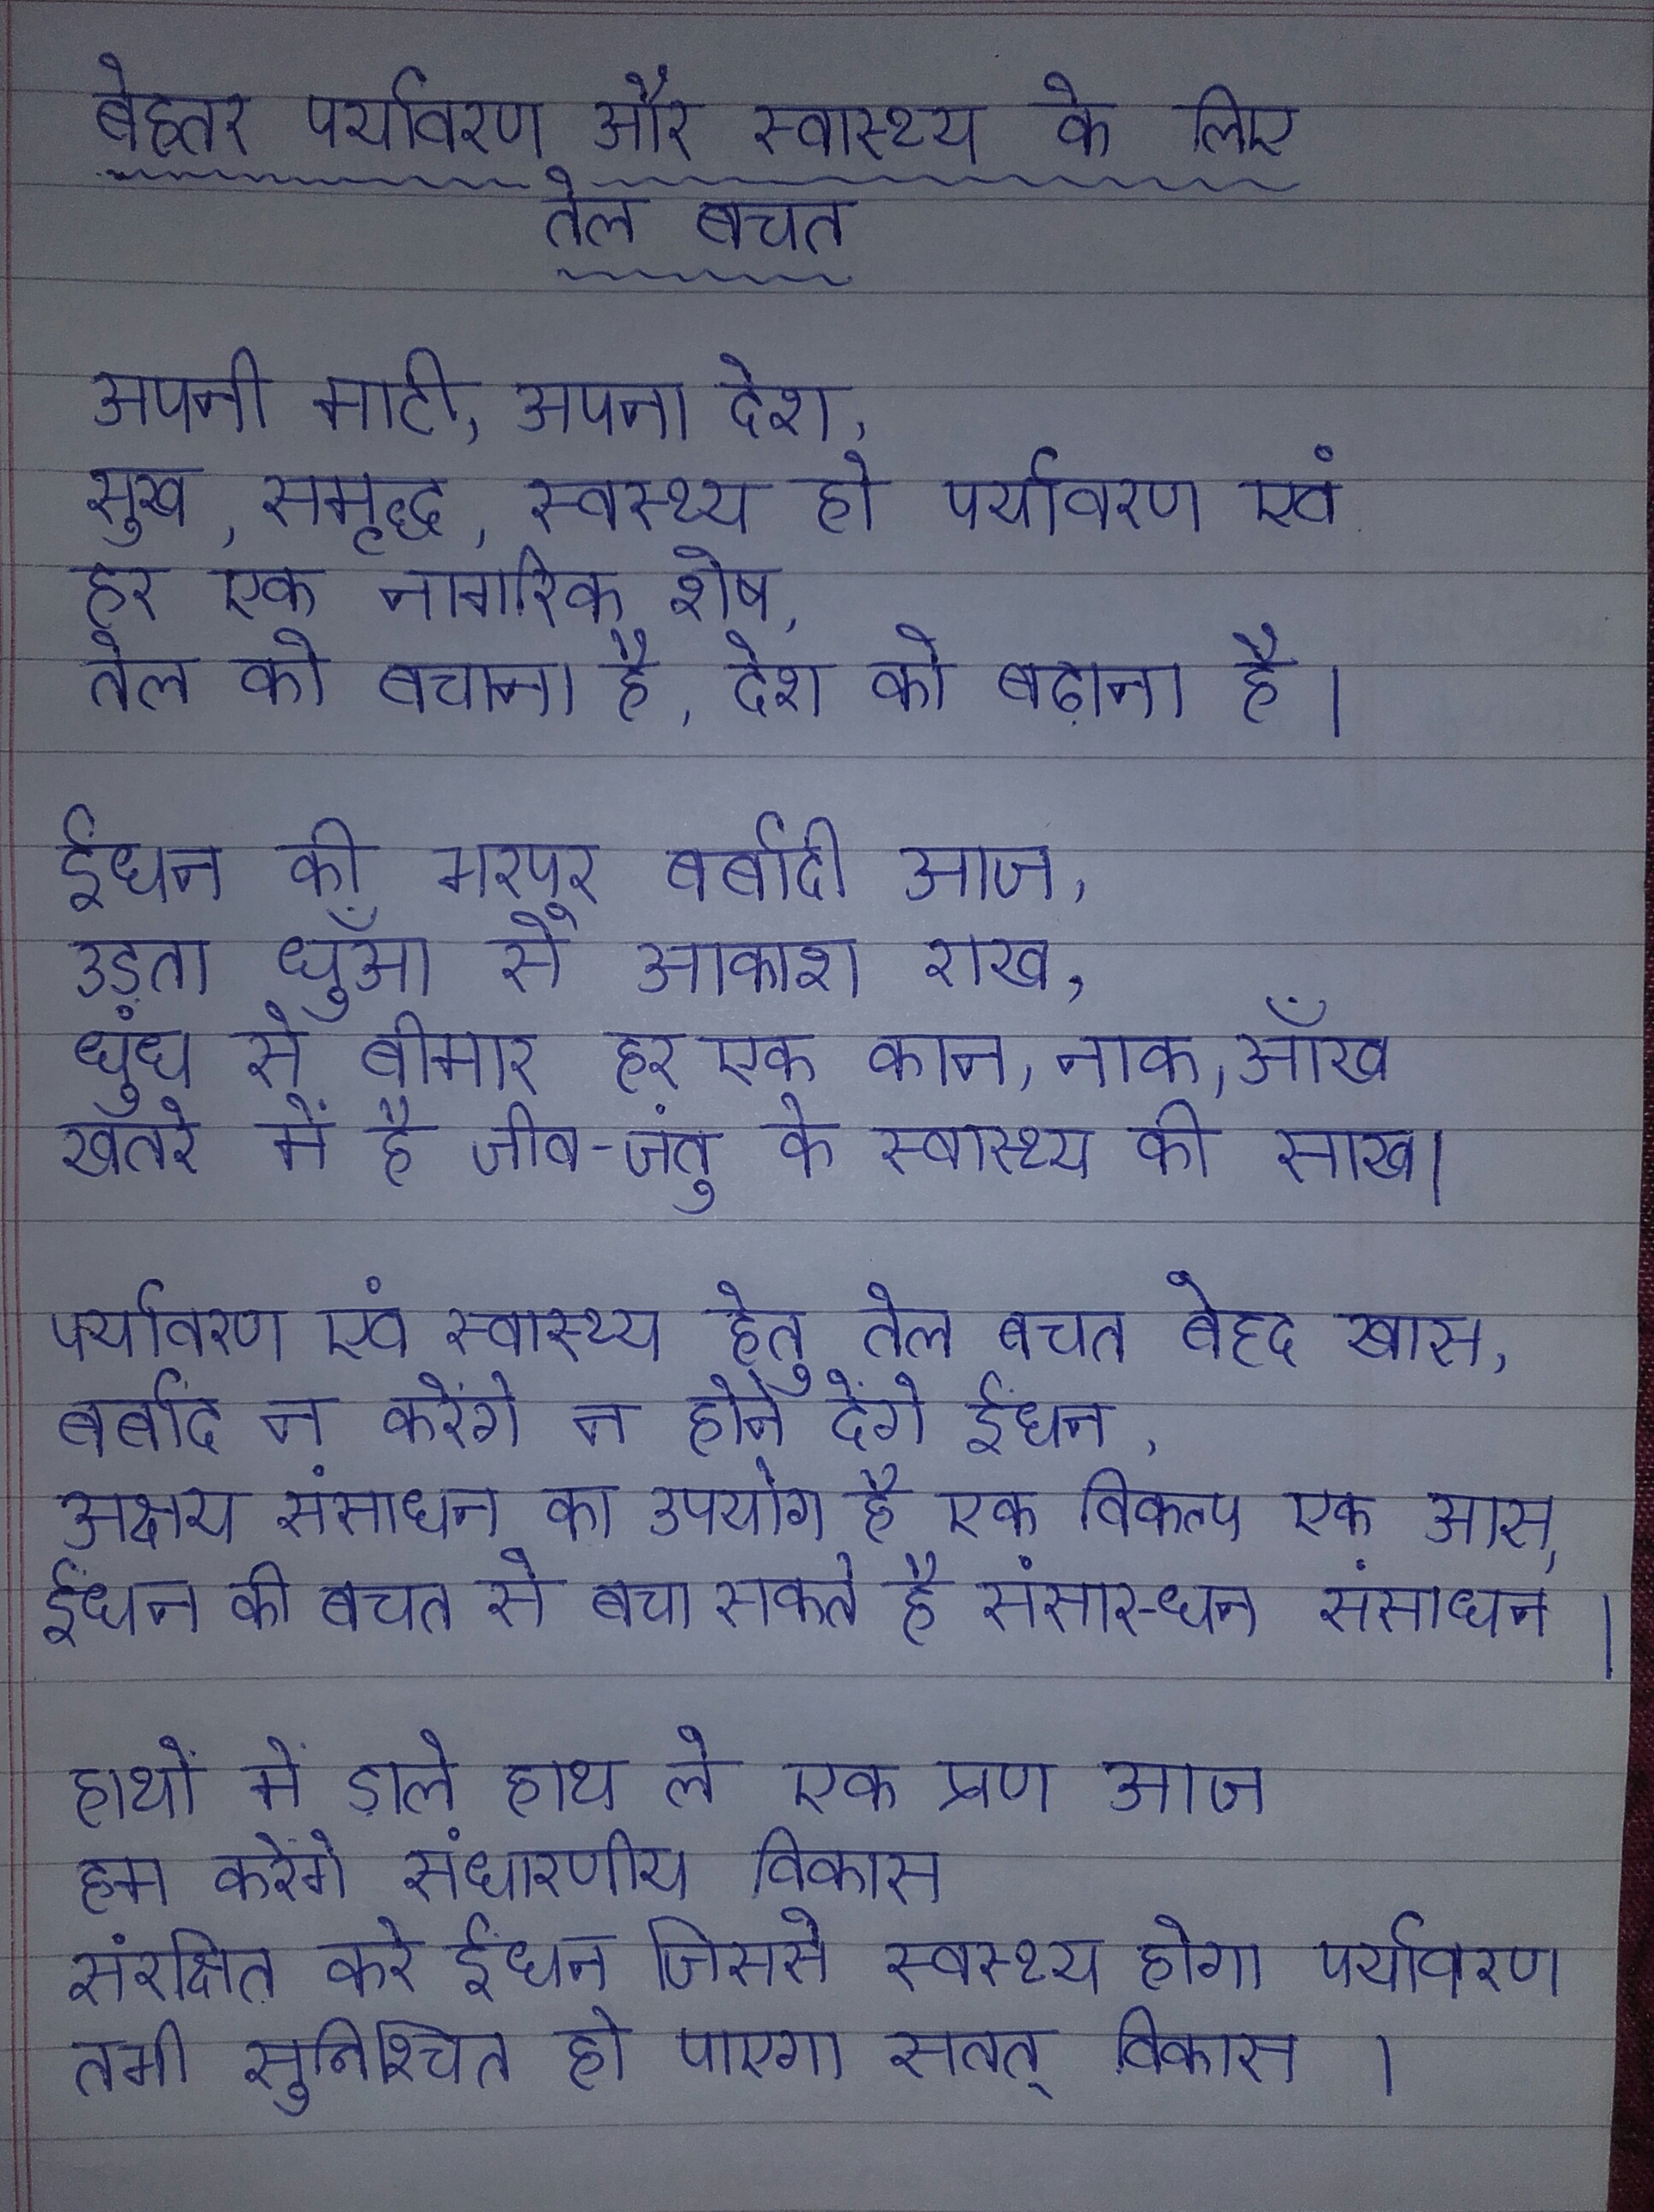 बेहतर पर्यावरण और स्वास्थ्य के लिए
तेल बचत
अपनी माटी, अपना देश,
सुख, समृद्ध, स्वस्थ्य हो पर्यावरण एवं
हर एक नागरिक शेष,
तेल को बचाना है, देश को बढ़ाना है।
ईंधन की भरपूर बर्बादी आज,
उड़ता धुँआ से आकाश राख,
धुंध से बीमार हर एक कान, नाक, आँख
खतरे में है जीव-जंतु के स्वास्थ्य की साख।
पर्यावरण एवं स्वास्थ्य हेतु तेल बचत बेहद खास,
बर्बाद न करेंगे न होने देंगे ईंधन,
अक्षय संसाधन का उपयोग है एक विकल्प एक आस,
ईंधन की बचत से बचा सकते है संसार-धन संसाधन।
हाथों में डाले हाथ ले एक प्रण आज
हम करेंगे संधारणीय विकास
संरक्षित करे ईंधन जिससे स्वस्थ्य होगा पर्यावरण
तभी सुनिश्चित हो पाएगा सतत् विकास ।